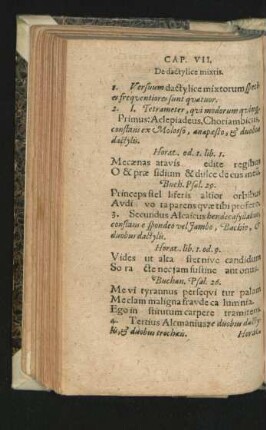 CAP. VII.
De dactylice mixtis.
1. Versuum dactylice mixtorum
es frequentiores sunt quatuor.
2. I. Tetrameter, qui
Primus: Asclepiadeus, Choriambicus,
constans ex Molosso, anapæsto, & duobus
dactylis.
Horat. od. 1. lib. 1.
Mecænas atavis edite regibus
O & præ sidium & dulce decus
Buch. Psal. 29.
Principe stel liferis altior orbibus
Audi vo ta parens
3. Secundus Alcaicus hendecasyllabus
constans e spondeo vel Jambo, Bachio, &
duobus dactylis.
Horat. lib. 1. od. 9.
Vides ut alta stet nive candidum
So ra cte nec jam sustine ant onus.
Buchan. Psal. 26.
Me vi tyrannus persequi tur palam
Me clam maligna fraude
Ego in stitutum carpere tramitem
4. Tertius Alcmanius e duobus dacty-
lis, & duobus trochæis.
Horat.